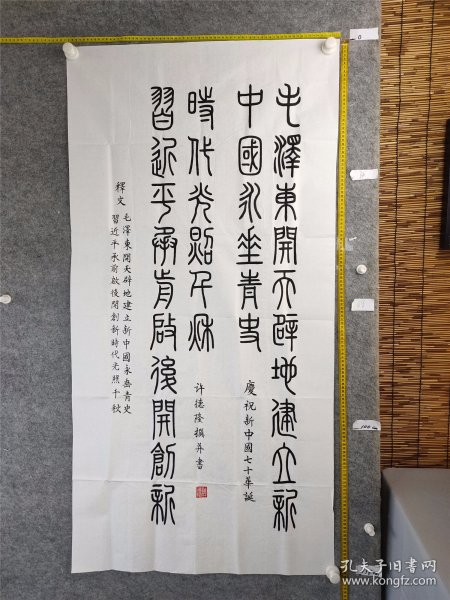 毛澤東開天辟地建立新
中國永垂青史
慶祝新中國七十華誕
時代光照千秋
習近平承前啟後開創新
許德隆撰并書
釋文
毛澤東開天辟地建立新中國永垂青史
習近平承前啟後開創新時代光照千秋
孔夫子旧书网
www.kongfz.com